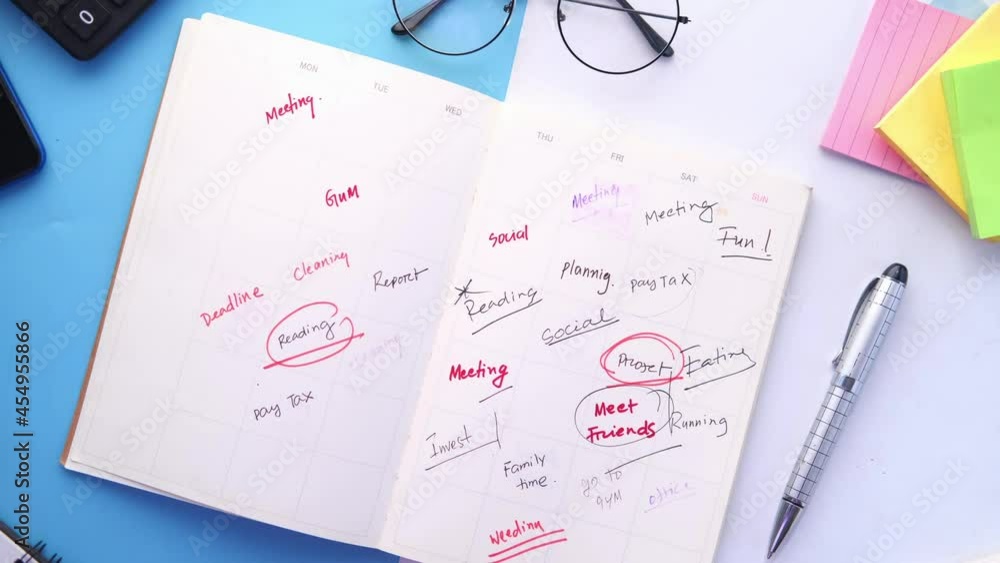 0
MON
TUE
WED
Meeting.
GUM
Cleaning
Deadline
Report
Reading
cleaning
pay Tax
THU
FRI
SAT
SUN
Meeting
Meeting
Fun!
Social
Plannig.
pay Tax
Reading
Social
Meeting
Eating
Meet
Friends
Running
Invest
Family
time.
go to
gym
office
Adobe Stock
Adobe Stock | #454955866